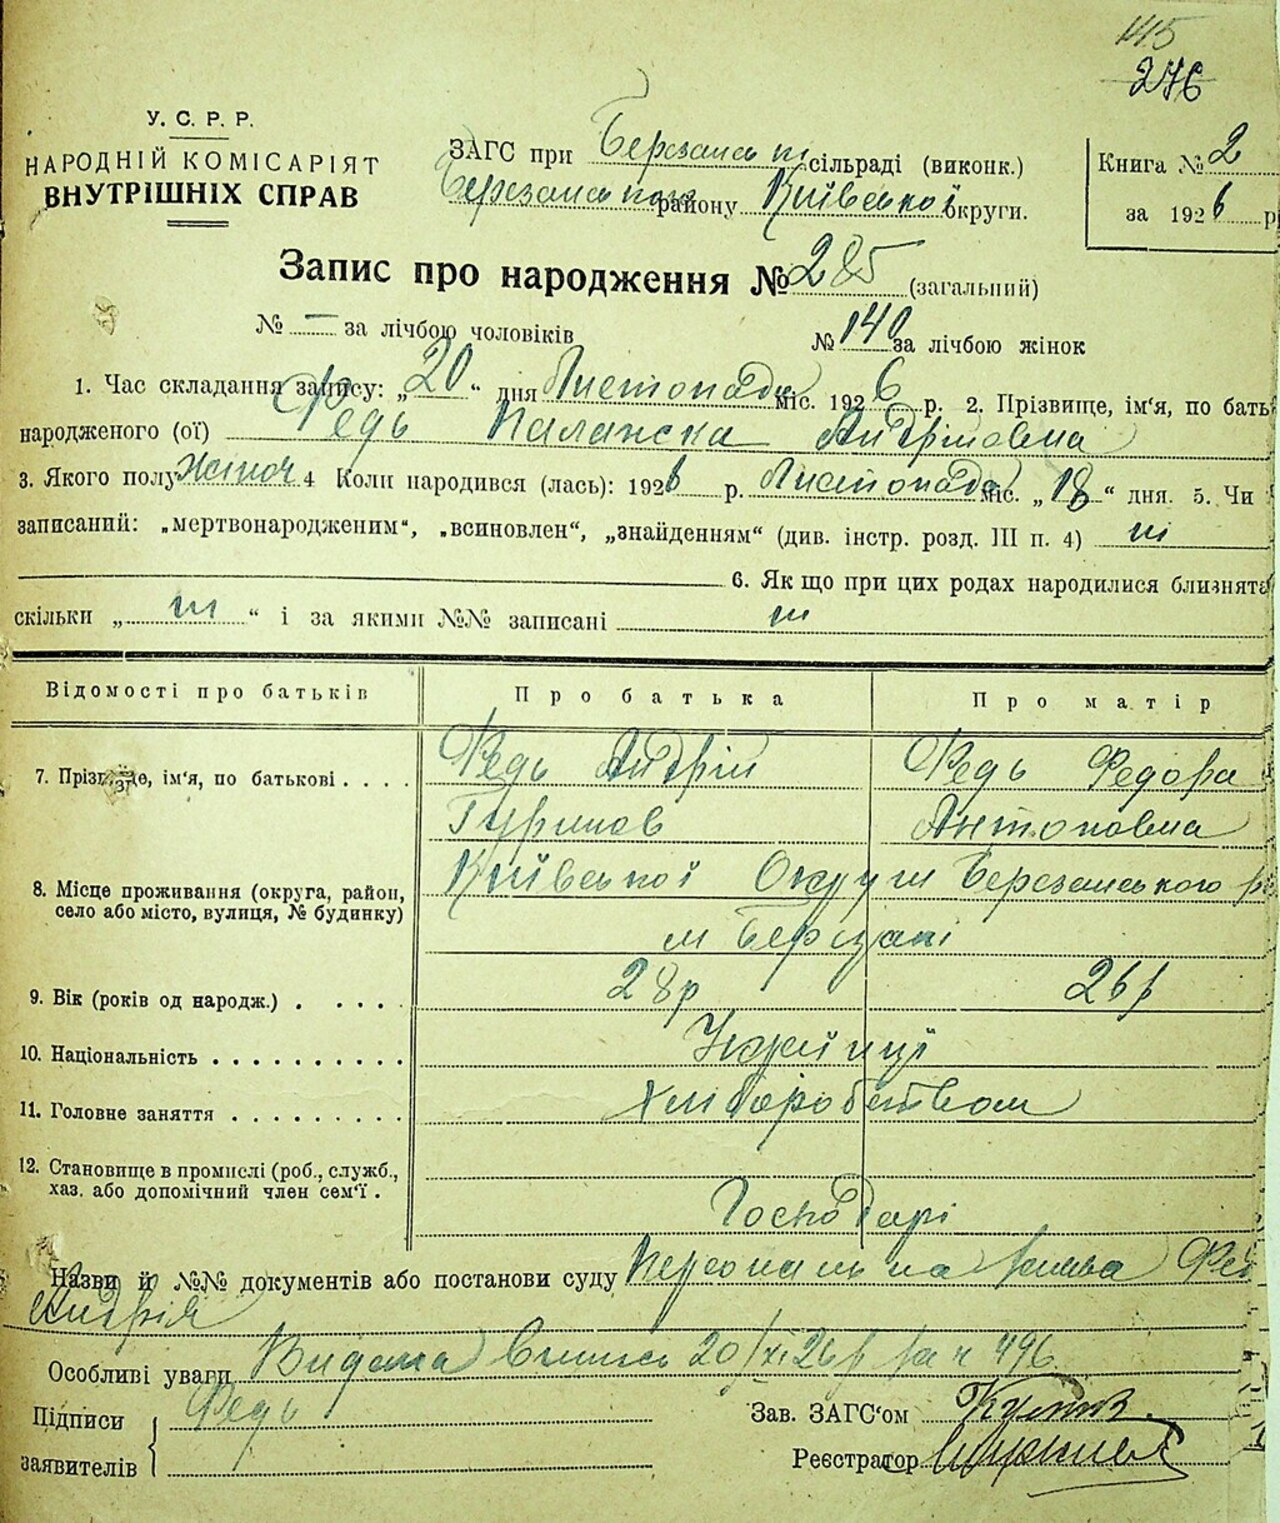 145
276
У. С. Р. Р.
НАРОДНІЙ КОМІСАРІЯТ
ВНУТРІШНІХ СПРАВ
ЗАГС при Березанській сільраді (виконк.)
Березанського району Київської округи.
Книга № 2
за 1926 р
Запис про народження № 285 (загальний)
№ — за лічбою чоловіків № 140 за лічбою жінок
1. Час складання запису: „20“ дня Листопада міс. 1926 р. 2. Прізвище, ім‘я, по бать
народженого (ої) Редь Палажка Андріівна
3. Якого полу жіноч 4 Коли народився (лась): 1926 р. Листопада міс. „18“ дня. 5. Чи
записаний: „мертвонародженим“, „всиновлен“, „знайденням“ (див. інстр. розд. III п. 4) ні
6. Як що при цих родах народилися близнята
скільки „ ні “ і за якими №№ записані ні
Відомості про батьків Про батька Про матір
7. Прізвище, ім‘я, по батькові . . . . Редь Андрій Редь Федора
Гуринов Антоновна
8. Місце проживання (округа, район, Київської Округи Березанського р
село або місто, вулиця, № будинку) м Березані
9. Вік (років од народж.) . . . . . 28р 26р
10. Національність . . . . . . . . . . Украінці
11. Головне заняття . . . . . . . . . Хліборобством
12. Становище в промислі (роб., служб.,
хаз. або допомічний член сем‘ї . Господарі
Назви й №№ документів або постанови суду Персональна заява Ред
Андрія
Особливі уваги Видана Випись 20/XI 26р за ч 496
Підписи Редь Зав. ЗАГС‘ом
заявителів Реєстратор